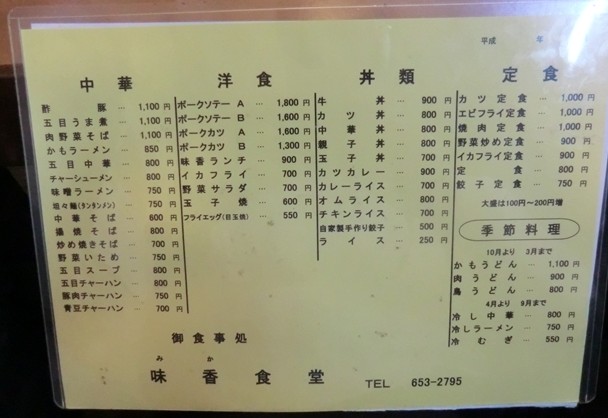 平成 年
中華
酢豚 … 1,100 円
五目うま煮 … 1,100 円
肉野菜そば … 1,100 円
かもラーメン … 850 円
五目中華 … 800 円
チャーシューメン … 800 円
味噌ラーメン … 750 円
坦々麺(タンタンメン) … 750 円
中華そば … 600 円
揚焼そば … 800 円
炒め焼きそば … 700 円
野菜いため … 750 円
五目スープ … 800 円
五目チャーハン … 800 円
豚肉チャーハン … 750 円
青豆チャーハン … 700 円
洋食
ポークソテー A … 1,800 円
ポークソテー B … 1,600 円
ポークカツ A … 1,600 円
ポークカツ B … 1,300 円
味香ランチ … 900 円
イカフライ … 700 円
野菜サラダ … 700 円
玉子焼 … 600 円
フライエッグ(目玉焼) … 550 円
丼類
牛丼 … 900 円
カツ丼 … 800 円
中華丼 … 800 円
親子丼 … 700 円
玉子丼 … 700 円
カツカレー … 900 円
カレーライス … 700 円
オムライス … 800 円
チキンライス … 700 円
自家製手作り餃子 … 500 円
ライス … 250 円
定食
カツ定食 … 1,000 円
エビフライ定食 … 1,000 円
焼肉定食 … 1,000 円
野菜炒め定食 … 900 円
イカフライ定食 … 900 円
定食 … 800 円
餃子定食 … 750 円
大盛は100円～200円増
季節料理
10月より 3月まで
かもうどん … 1,100 円
肉うどん … 900 円
鳥うどん … 800 円
4月より 9月まで
冷し中華 … 800 円
冷しラーメン … 750 円
冷むぎ … 550 円
御食事処
みか
味香食堂
TEL 653-2795